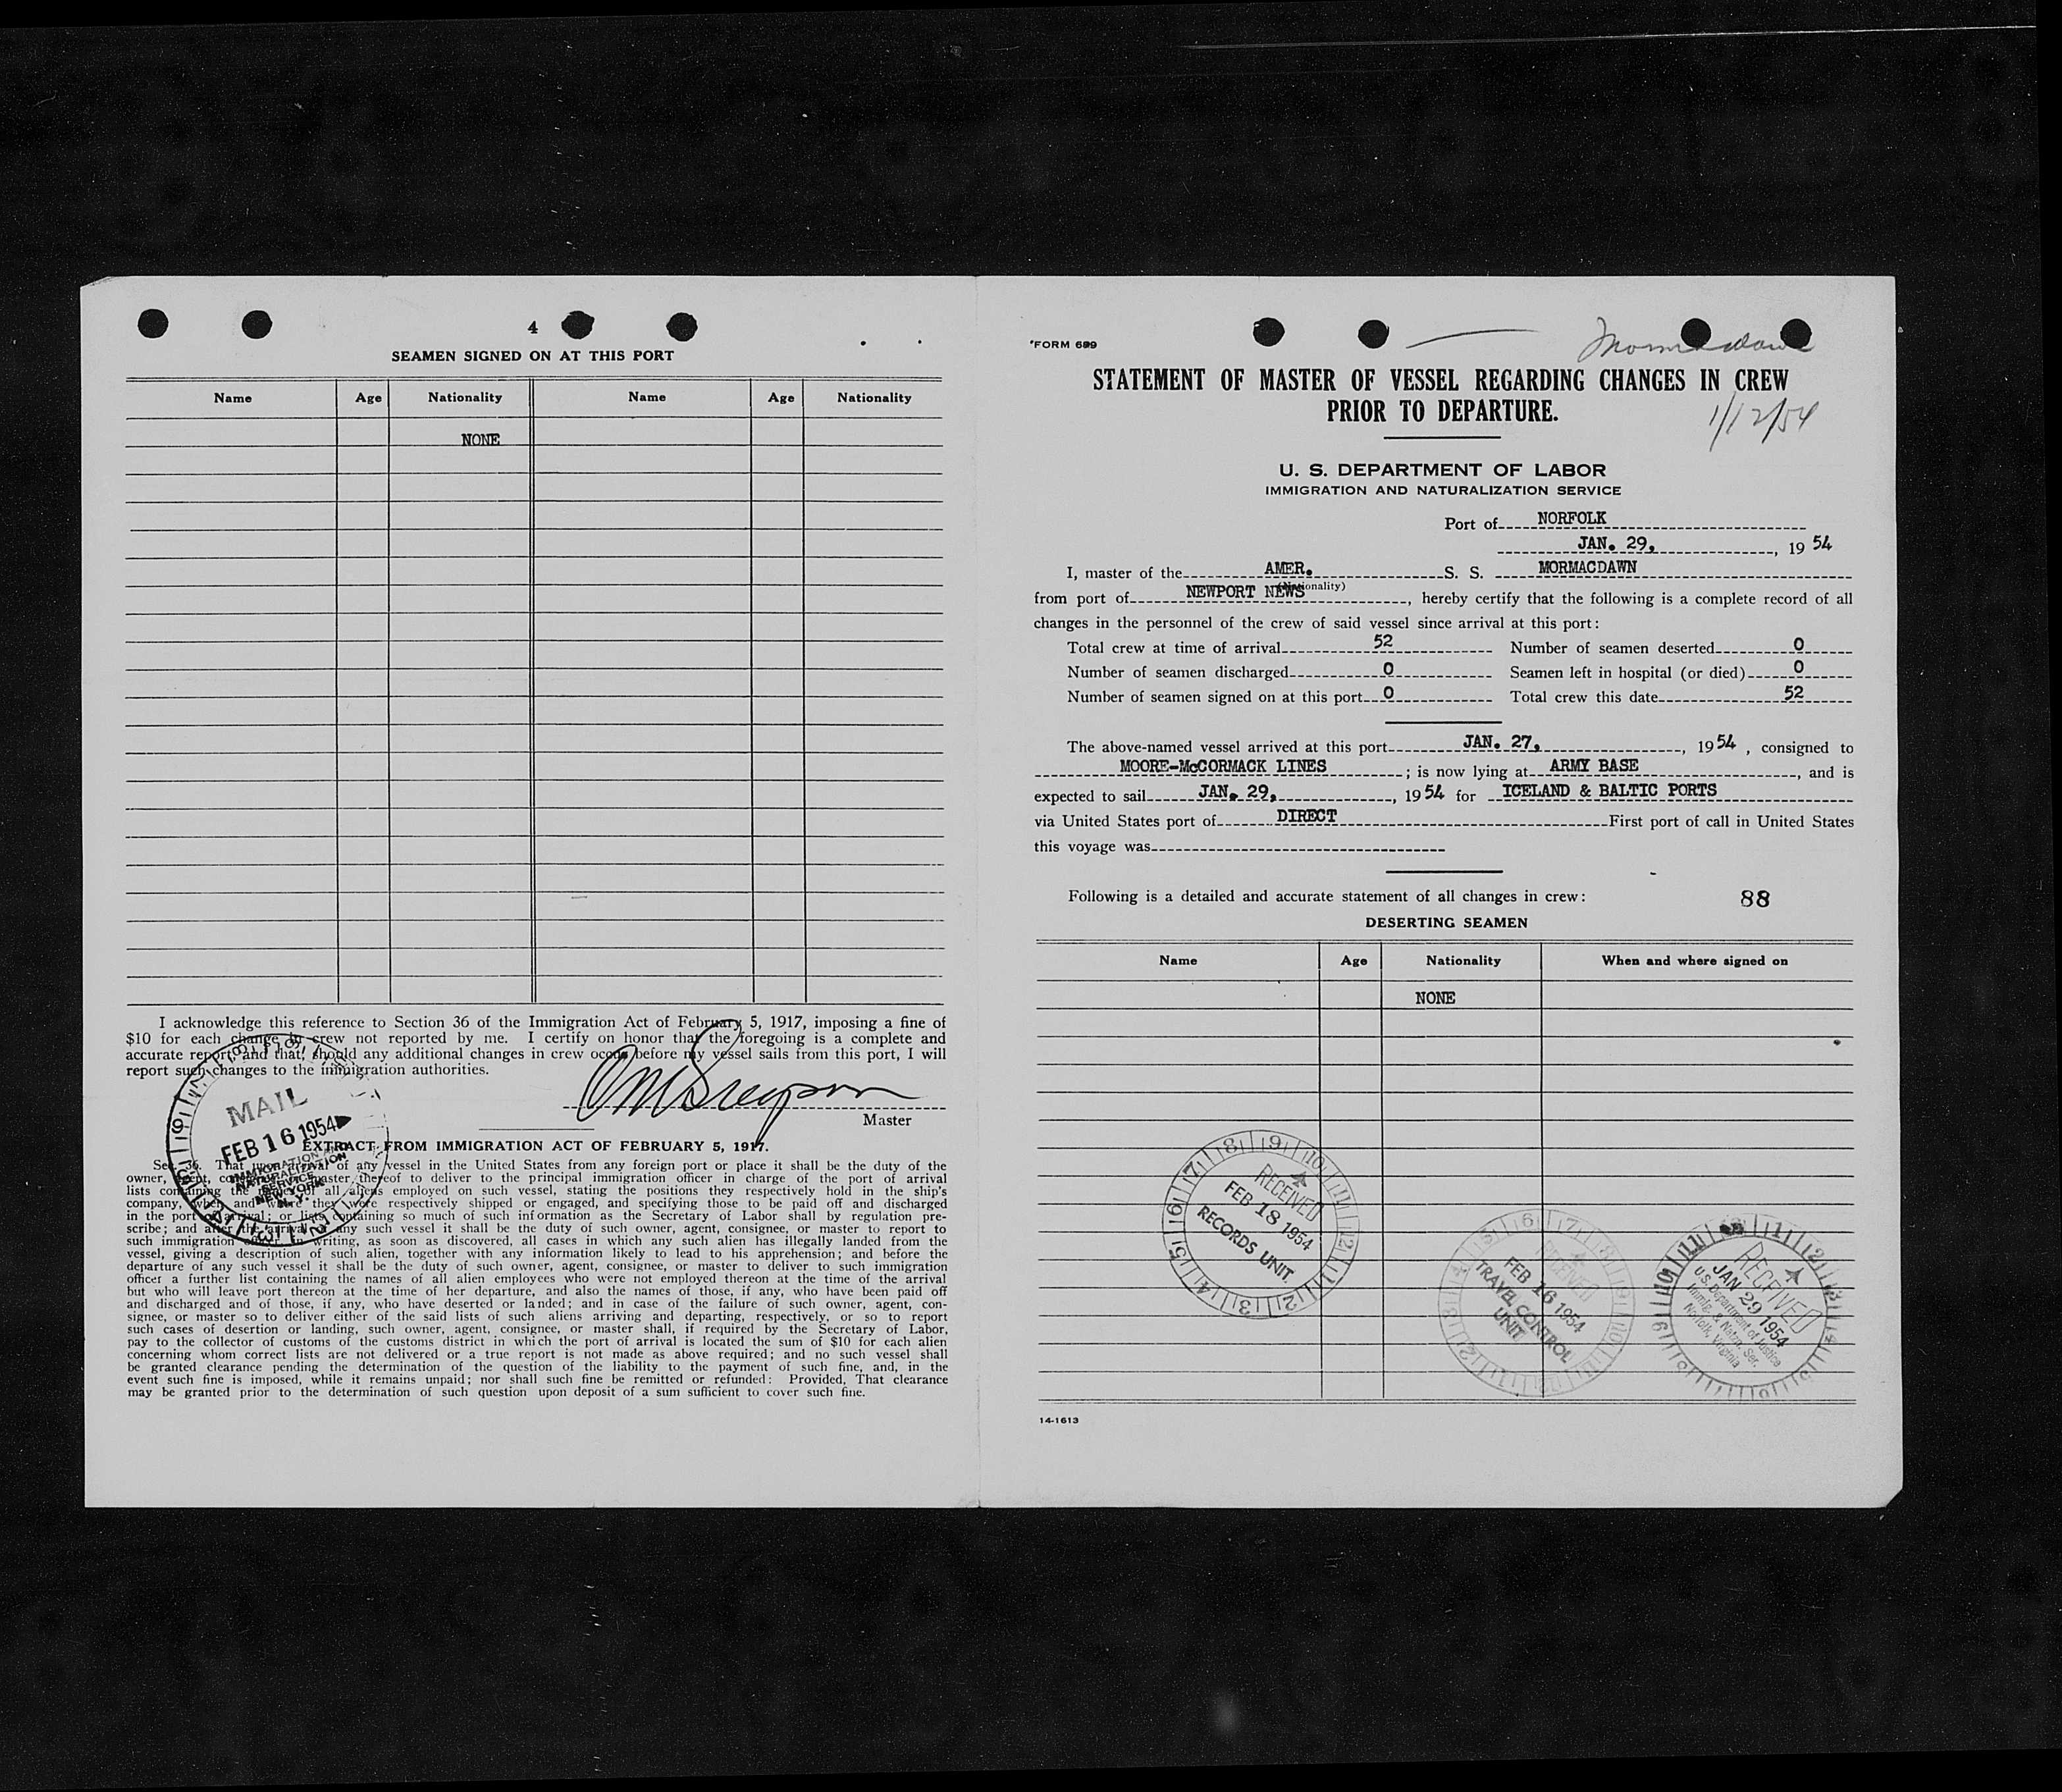 4
SEAMEN SIGNED ON AT THIS PORT
Name Age Nationality Name Age Nationality
NONE
I acknowledge this reference to Section 36 of the Immigration Act of February 5, 1917, imposing a fine of
$10 for each change in crew not reported by me. I certify on honor that the foregoing is a complete and
accurate report and that, should any additional changes in crew occur before my vessel sails from this port, I will
report such changes to the immigration authorities.
Master
EXTRACT FROM IMMIGRATION ACT OF FEBRUARY 5, 1917.
Sec. 36. That upon arrival of any vessel in the United States from any foreign port or place it shall be the duty of the
owner, agent, consignee, or master thereof to deliver to the principal immigration officer in charge of the port of arrival
lists containing the names of all aliens employed on such vessel, stating the positions they respectively hold in the ship's
company, when and where they were respectively shipped or engaged, and specifying those to be paid off and discharged
in the port of arrival; or lists containing so much of such information as the Secretary of Labor shall by regulation pre-
scribe; and after the arrival of any such vessel it shall be the duty of such owner, agent, consignee, or master to report to
such immigration officer, in writing, as soon as discovered, all cases in which any such alien has illegally landed from the
vessel, giving a description of such alien, together with any information likely to lead to his apprehension; and before the
departure of any such vessel it shall be the duty of such owner, agent, consignee, or master to deliver to such immigration
officer a further list containing the names of all alien employees who were not employed thereon at the time of the arrival
but who will leave port thereon at the time of her departure, and also the names of those, if any, who have been paid off
and discharged and of those, if any, who have deserted or landed; and in case of the failure of such owner, agent, con-
signee, or master so to deliver either of the said lists of such aliens arriving and departing, respectively, or so to report
such cases of desertion or landing, such owner, agent, consignee, or master shall, if required by the Secretary of Labor,
pay to the collector of customs of the customs district in which the port of arrival is located the sum of $10 for each alien
concerning whom correct lists are not delivered or a true report is not made as above required; and no such vessel shall
be granted clearance pending the determination of the question of the liability to the payment of such fine, and, in the
event such fine is imposed, while it remains unpaid; nor shall such fine be remitted or refunded: Provided, That clearance
may be granted prior to the determination of such question upon deposit of a sum sufficient to cover such fine.
MAIL
FEB 16 1954
IMMIGRATION AND
NATURALIZATION
SERVICE
NEW YORK
N. Y.
FORM 689
Mormacdawn
STATEMENT OF MASTER OF VESSEL REGARDING CHANGES IN CREW
PRIOR TO DEPARTURE.
1/12/54
U. S. DEPARTMENT OF LABOR
IMMIGRATION AND NATURALIZATION SERVICE
Port of NORFOLK
JAN. 29, , 19 54
I, master of the AMER. S. S. MORMACDAWN
(Nationality)
from port of NEWPORT NEWS , hereby certify that the following is a complete record of all
changes in the personnel of the crew of said vessel since arrival at this port:
Total crew at time of arrival 52 Number of seamen deserted 0
Number of seamen discharged 0 Seamen left in hospital (or died) 0
Number of seamen signed on at this port 0 Total crew this date 52
The above-named vessel arrived at this port JAN. 27, , 19 54 , consigned to
MOORE-McCORMACK LINES ; is now lying at ARMY BASE , and is
expected to sail JAN. 29, , 19 54 for ICELAND & BALTIC PORTS
via United States port of DIRECT First port of call in United States
this voyage was
Following is a detailed and accurate statement of all changes in crew: 88
DESERTING SEAMEN
Name Age Nationality When and where signed on
NONE
RECEIVED
FEB 18 1954
RECORDS UNIT
RECEIVED
FEB 16 1954
TRAVEL CONTROL
UNIT
RECEIVED
JAN 29 1954
U.S. Department of Justice
Immig. & Natzn. Ser.
Norfolk, Virginia
14-1613